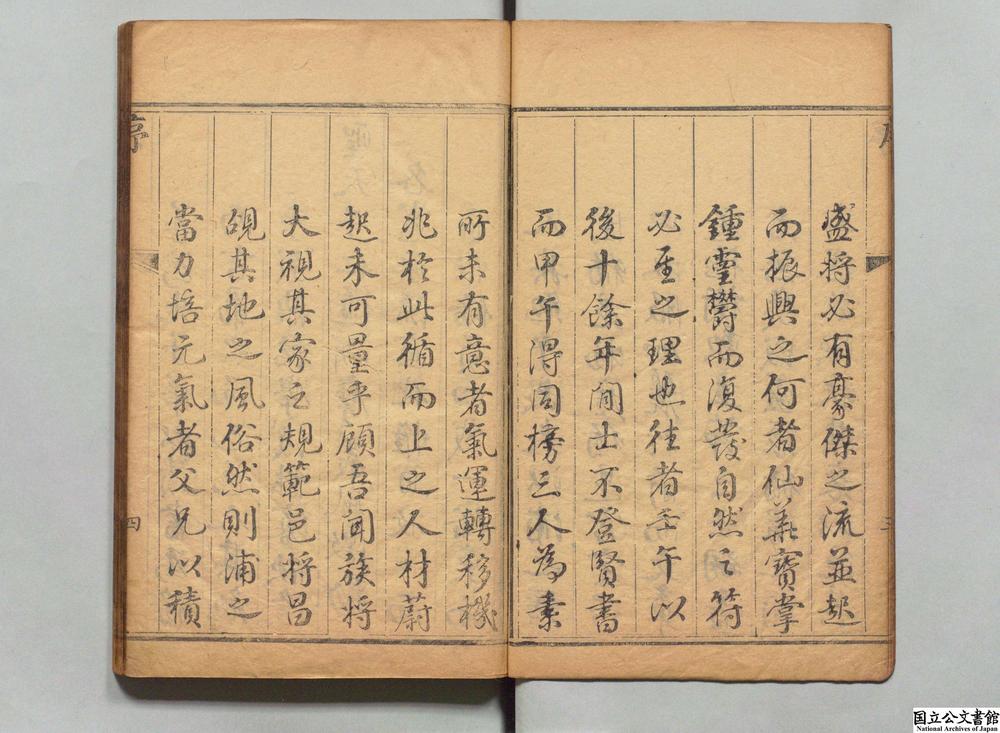 盛将必有豪傑之流並起
而振興之何者仙華寶掌
鍾靈鬱而復發自然之符
必至之理也往者壬午以
後十餘年間士不登賢書
而甲午得同榜三人為素
三
所未有意者氣運轉移機
兆於此循而上之人材蔚
起未可量乎顧吾聞族將
大視其家之規範邑将昌
覘其地之風俗然則浦之
當力培元氣者父兄以積
序
四
国立公文書館
National Archives of Japan